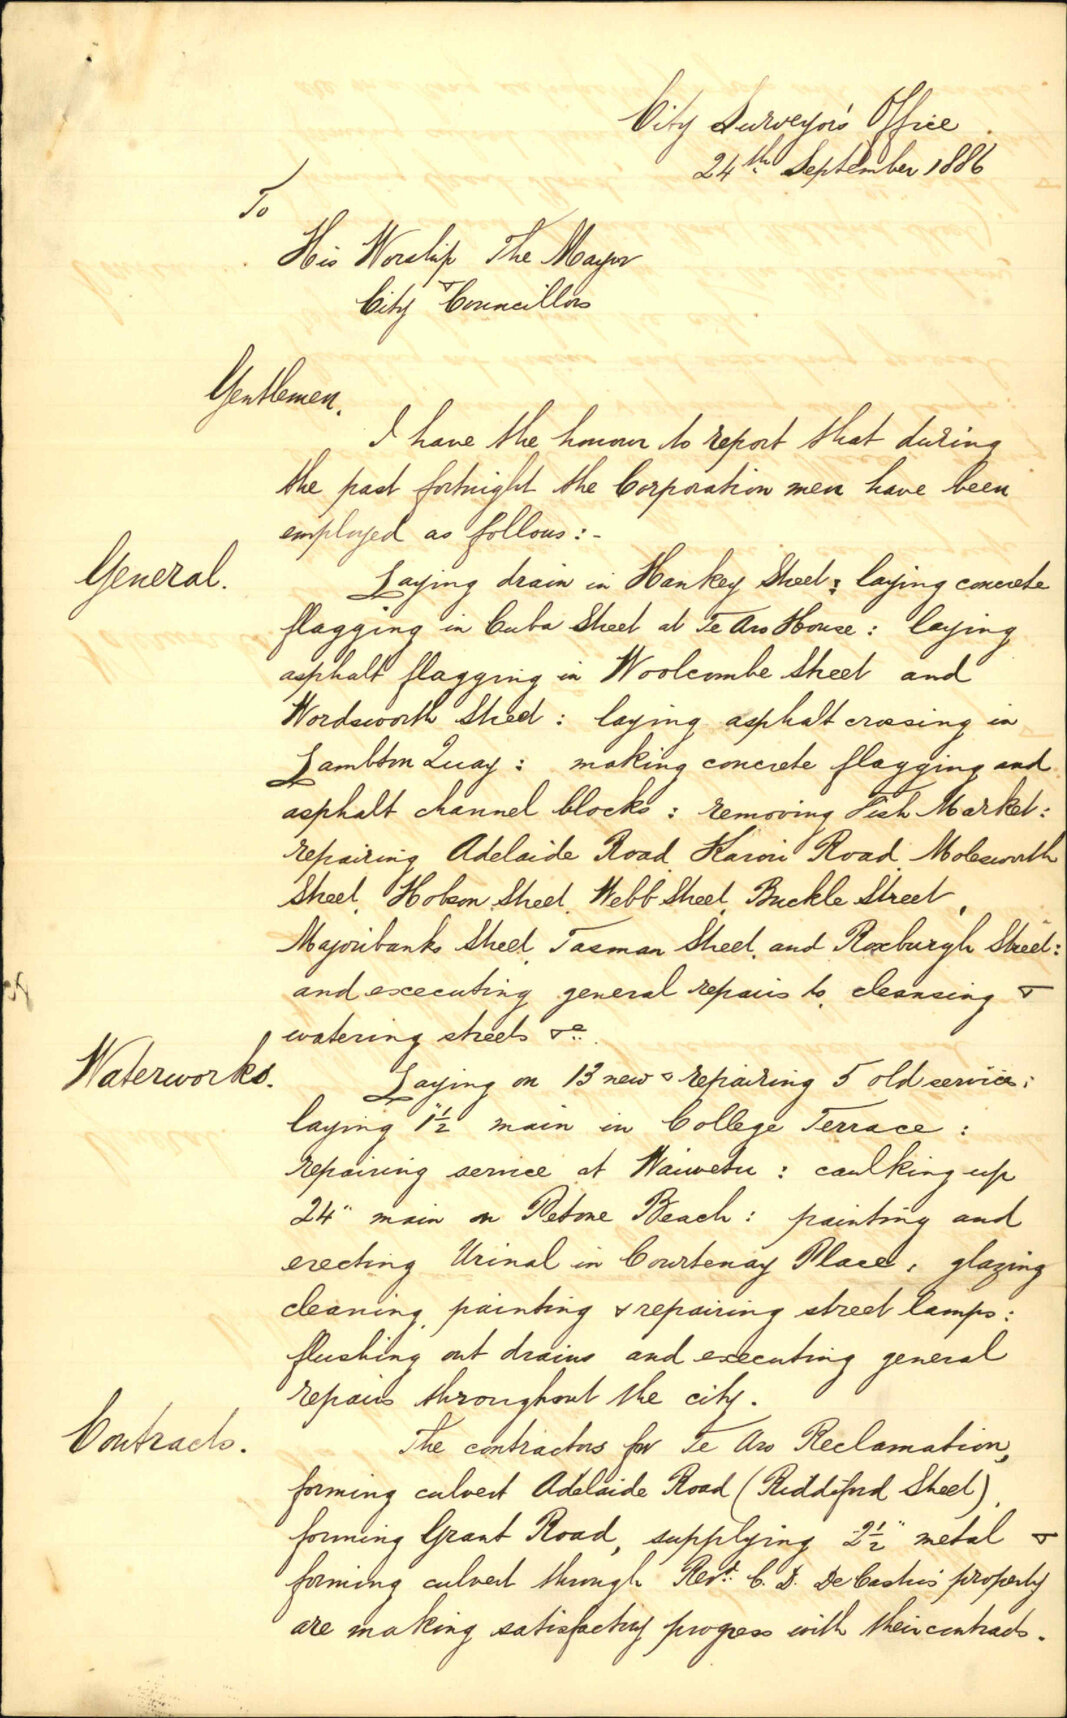 City Surveyor's Office
24th September 1886
To
His Worship The Mayor
&
City Councillors
Gentlemen.
I have the honour to report that during
the past fortnight the Corporation men have been
employed as follows:-
General.
Laying drain in Hankey Street: laying concrete
flagging in Cuba Street at Te Aro House: laying
asphalt flagging in Woolcombe Street and
Wordsworth Street: laying asphalt crossing in
Lambton Quay: making concrete flagging and
asphalt channel blocks: removing Fish Market:
repairing Adelaide Road, Karori Road, Molesworth
Street, Hobson Street, Webb Street, Buckle Street,
Majoribanks Street, Tasman Street, and Roxburgh Street:
and excecuting general repairs to, cleansing &
watering streets &c.
Waterworks.
Laying on 13 new & repairing 5 old services:
laying 1½" main in College Terrace:
repairing service at Waiwetu: caulking up
24" main on Petone Beach: painting and
erecting Urinal in Courtenay Place, glazing
cleaning, painting & repairing street lamps:
flushing out drains and executing general
repairs throughout the city.
Contracts.
The contractors for Te Aro Reclamation,
forming culvert Adelaide Road (Riddiford Street),
forming Grant Road, supplying 2½" metal &
forming culvert through Revd. C. D. De Castro's property
are making satisfactory progress with their contracts.